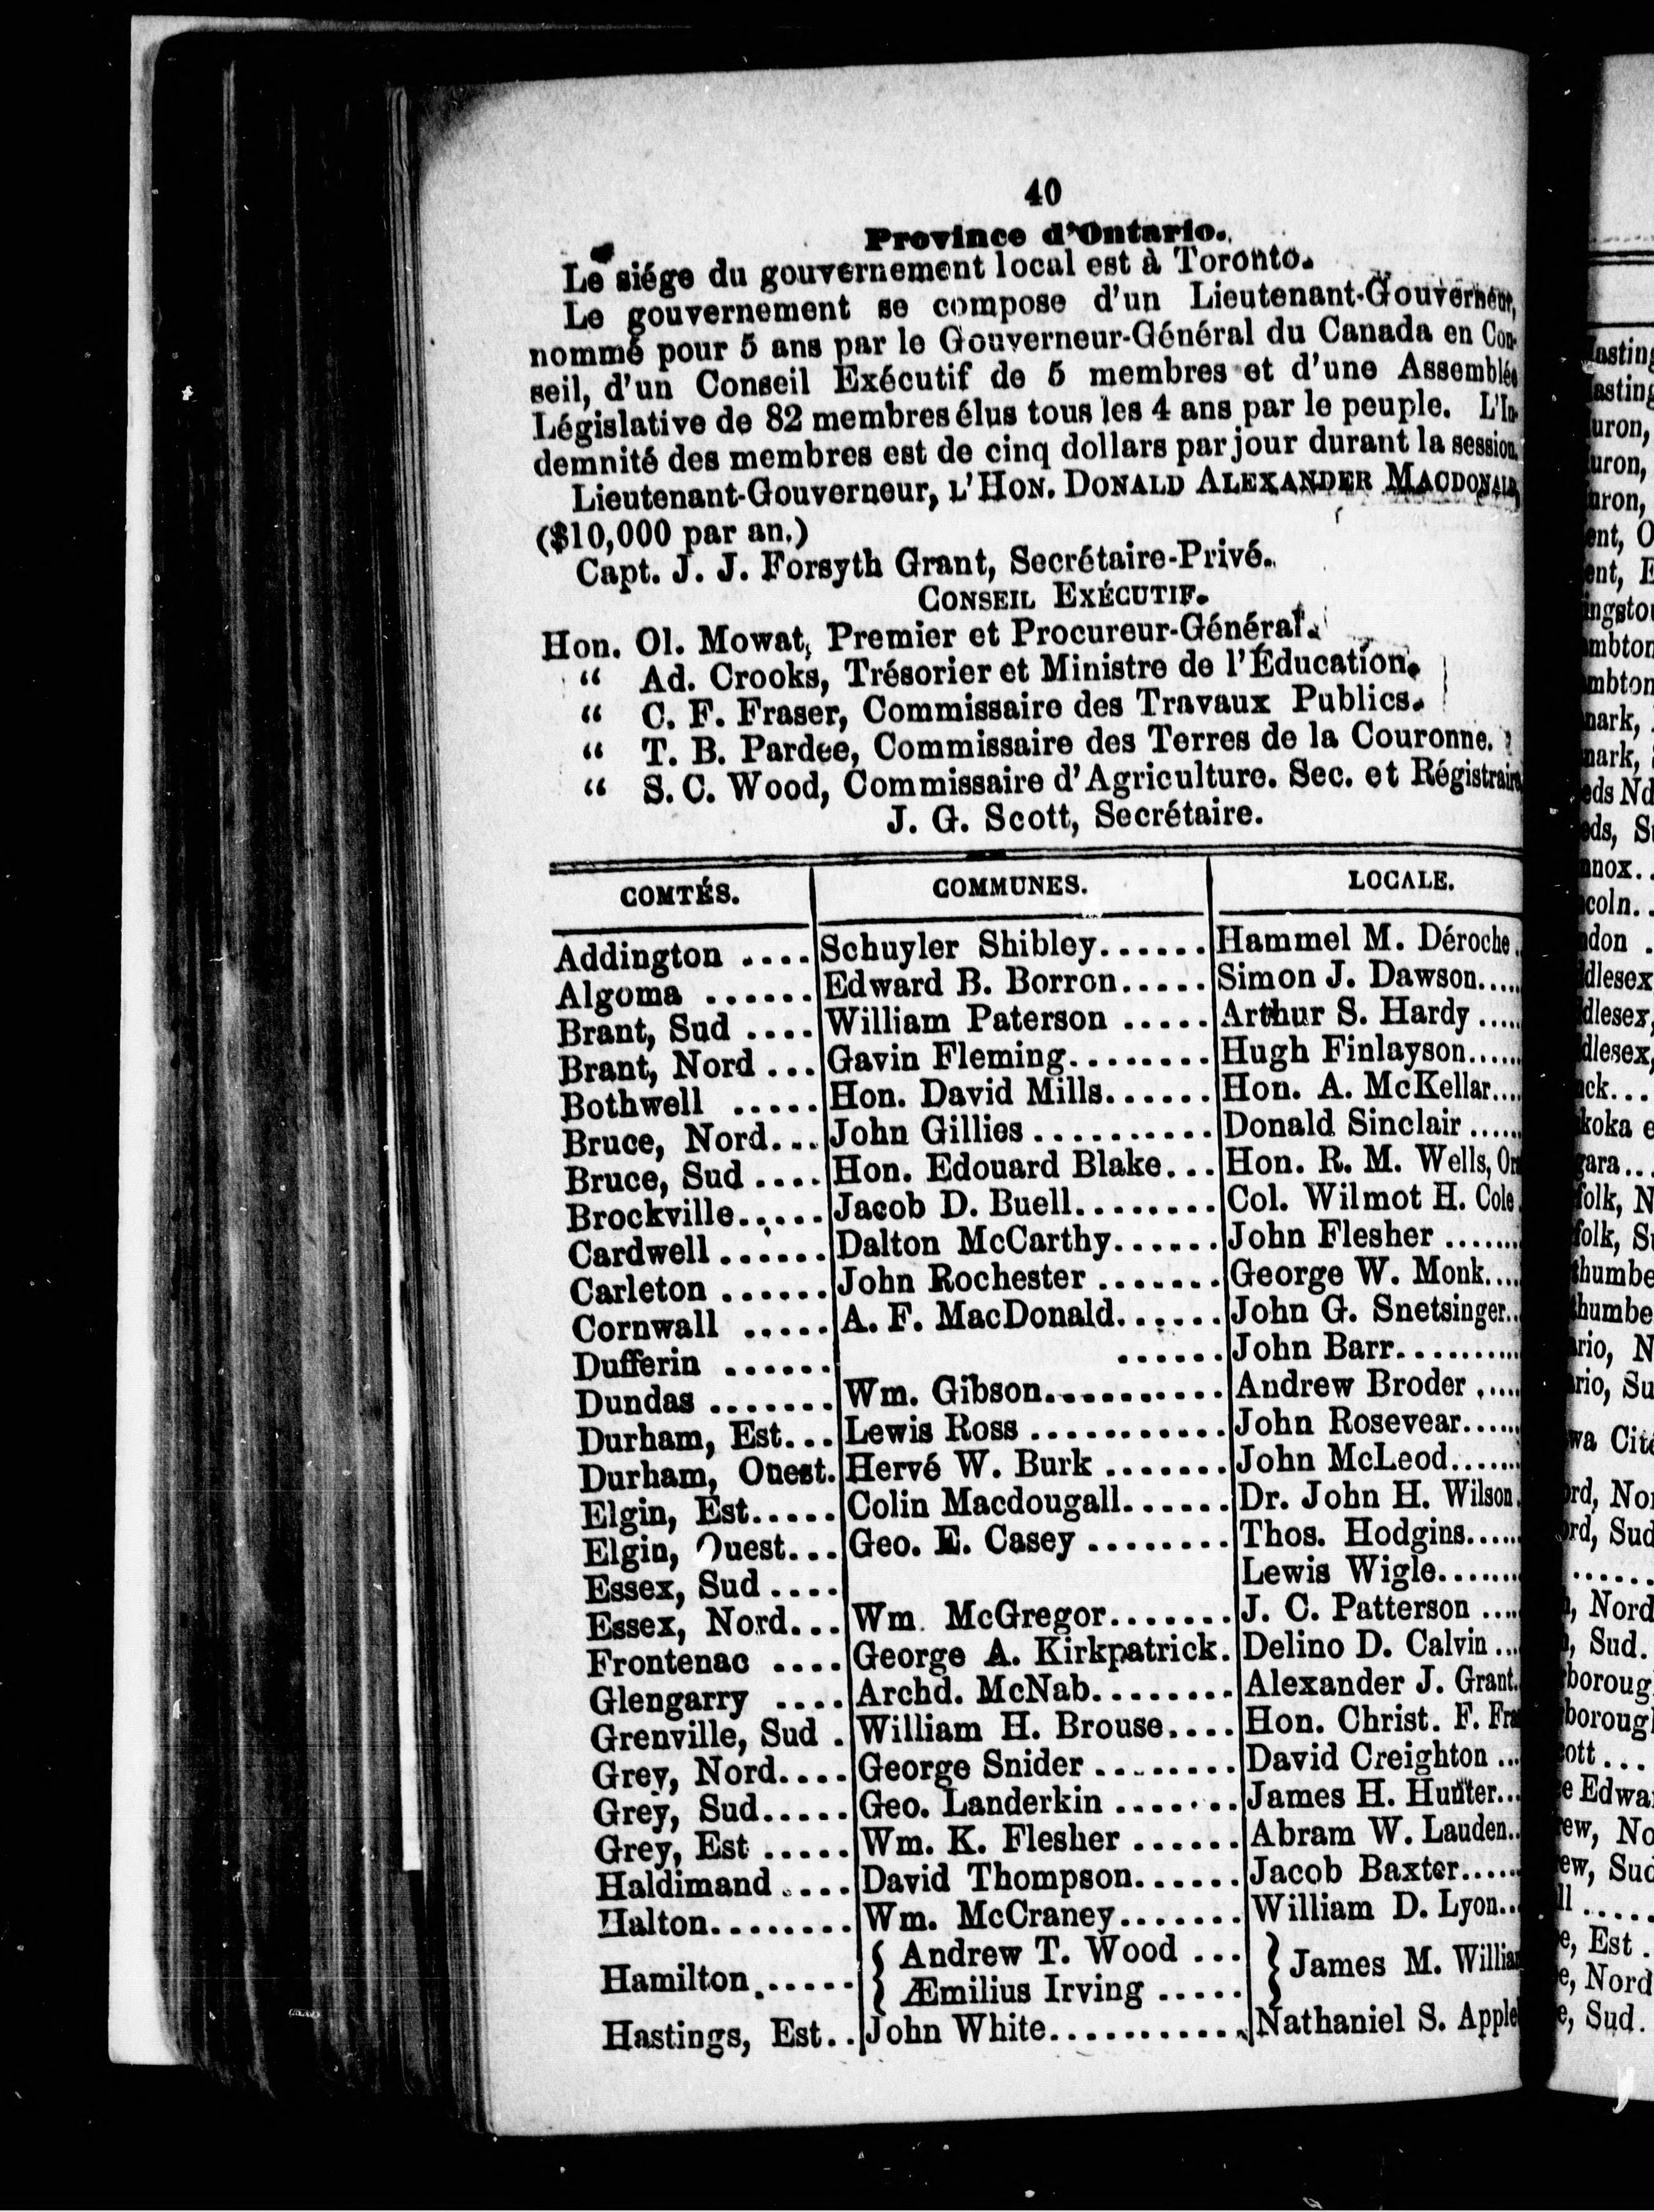 40
Province d'Ontario.
Le siége du gouvernement local est à Toronto.
Le gouvernement se compose d'un Lieutenant-Gouverneur,
nommé pour 5 ans par le Gouverneur-Général du Canada en Con-
seil, d'un Conseil Exécutif de 5 membres et d'une Assemblée
Législative de 82 membres élus tous les 4 ans par le peuple. L'In-
demnité des membres est de cinq dollars par jour durant la session.
Lieutenant-Gouverneur, L'HON. DONALD ALEXANDER MACDONALD,
($10,000 par an.)
Capt. J. J. Forsyth Grant, Secrétaire-Privé.
CONSEIL EXÉCUTIF.
Hon. Ol. Mowat, Premier et Procureur-Général.
" Ad. Crooks, Trésorier et Ministre de l'Éducation.
" C. F. Fraser, Commissaire des Travaux Publics.
" T. B. Pardee, Commissaire des Terres de la Couronne.
" S. C. Wood, Commissaire d'Agriculture. Sec. et Régistraire
J. G. Scott, Secrétaire.
COMTÉS. COMMUNES. LOCALE.
Addington .... Schuyler Shibley...... Hammel M. Déroche..
Algoma ...... Edward B. Borron..... Simon J. Dawson.....
Brant, Sud .... William Paterson ..... Arthur S. Hardy .....
Brant, Nord ... Gavin Fleming........ Hugh Finlayson......
Bothwell ..... Hon. David Mills...... Hon. A. McKellar....
Bruce, Nord... John Gillies .......... Donald Sinclair ......
Bruce, Sud .... Hon. Edouard Blake... Hon. R. M. Wells,
Brockville..... Jacob D. Buell........ Col. Wilmot H. Cole.
Cardwell ...... Dalton McCarthy...... John Flesher .......
Carleton ...... John Rochester ....... George W. Monk....
Cornwall ..... A. F. MacDonald...... John G. Snetsinger..
Dufferin ...... ...... John Barr..........
Dundas ....... Wm. Gibson.......... Andrew Broder .....
Durham, Est... Lewis Ross ........... John Rosevear......
Durham, Ouest. Hervé W. Burk ....... John McLeod.......
Elgin, Est..... Colin Macdougall...... Dr. John H. Wilson.
Elgin, Ouest... Geo. E. Casey ........ Thos. Hodgins.....
Essex, Sud .... Lewis Wigle.......
Essex, Nord... Wm. McGregor....... J. C. Patterson ....
Frontenac .... George A. Kirkpatrick. Delino D. Calvin ...
Glengarry .... Archd. McNab........ Alexander J. Grant.
Grenville, Sud . William H. Brouse.... Hon. Christ. F.
Grey, Nord.... George Snider ........ David Creighton ...
Grey, Sud..... Geo. Landerkin ....... James H. Hunter...
Grey, Est ..... Wm. K. Flesher ...... Abram W. Lauden..
Haldimand .... David Thompson...... Jacob Baxter.....
Halton........ Wm. McCraney....... William D. Lyon...
Hamilton ..... { Andrew T. Wood ... } James M.
{ Æmilius Irving ..... }
Hastings, Est.. John White........... Nathaniel S.